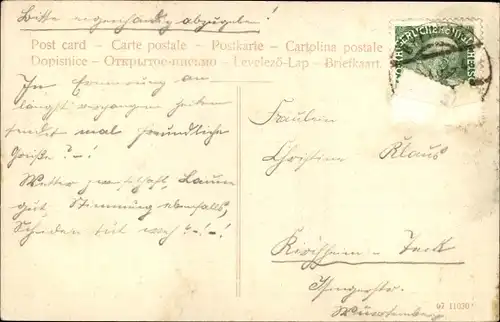 Bitte eigenhändig abzugeben!
Post card - Carte postale - Postkarte - Cartolina postale
Dopisnice - Открытое письмо - Levelező-Lap - Briefkaart.
In Erinnerung an
längst vergangene Zeiten
sendet mal freundliche
Grüße?-!
Wetter zweifelhaft, Laune
gut, Stimmung ebenfalls,
Scheiden tut weh?-!-!
Fräulein
Christine Klaus
Kirchheim-Teck
Württemberg
07 11020